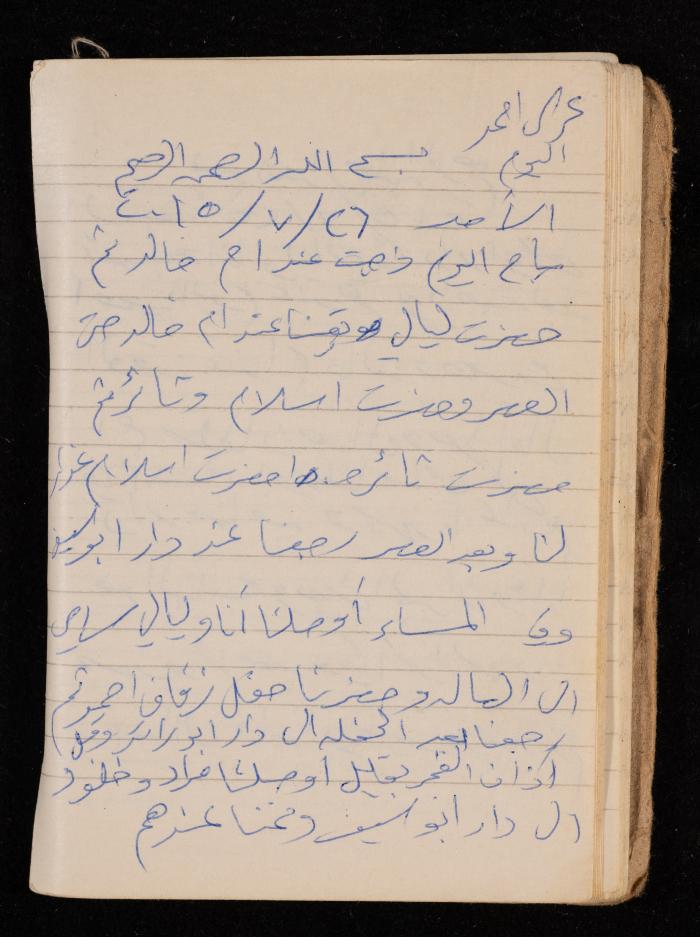 اليوم بسم الله الرحمن الرحيم
الأحد ٢٦/٧/٢٠١٥
صباح اليوم ذهبت عند ام خالد ثم
حضرت ليال وبقينا عند ام خالد حتى
العصر وحضرت اسلام وثائر ثم
حضرت ثائره احضرت اسلام
لنا وبعد العصر رجعنا عند دار ابو
وفي المساء أوصلنا أنا وليالي
الى الصاله وحضرنا حفل زفاف احمد ثم
رجعنا بعد الحفله الى دار ابو رائد وقبل
أذان الفجر بقليل اوصلنا مراد وخلود
الى دار ابو سيف ونمنا عندهم